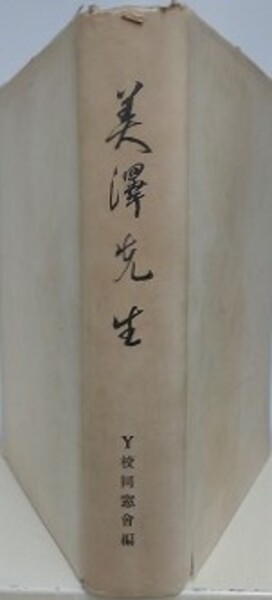 美澤先生
Y校同窓會編